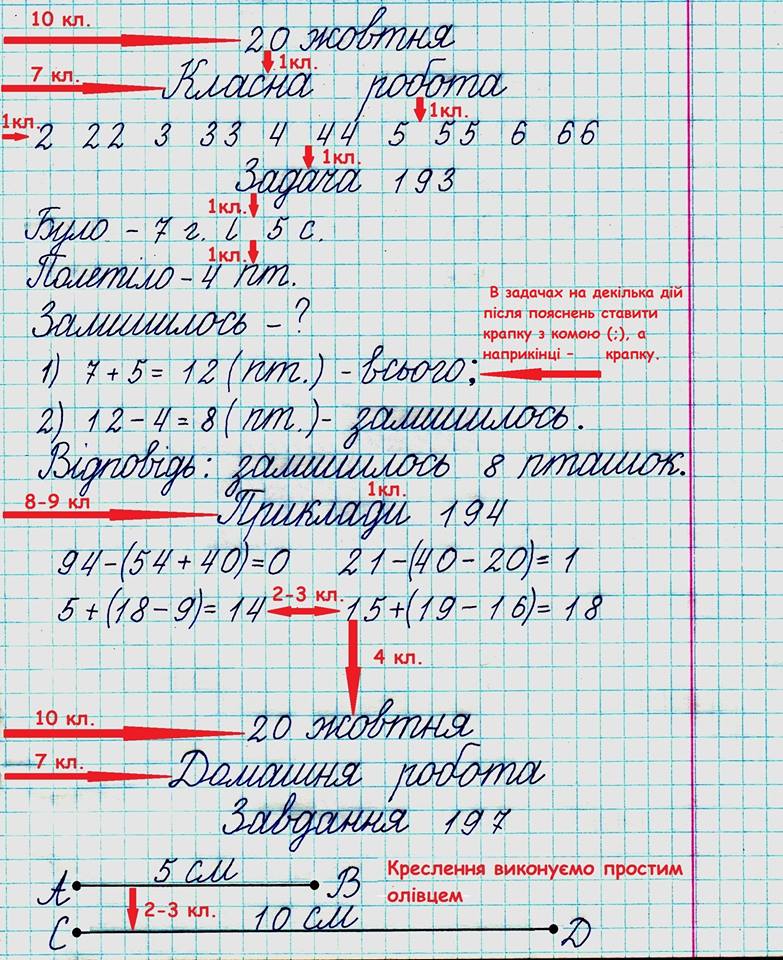 10 кл. 20 жовтня
1кл.
7 кл. Класна робота
1кл.
1кл. 2 22 3 33 4 44 5 55 6 66
1кл.
Задача 193
1кл.
Було – 7 г. і 5 с.
1кл.
Полетіло – 4 пт.
Залишилось – ?
В задачах на декілька дій
після пояснень ставити
крапку з комою (;), а
наприкінці – крапку.
1) 7 + 5 = 12 (пт.) – всього;
2) 12 – 4 = 8 (пт.) – залишилось.
Відповідь: залишилось 8 пташок.
1кл.
8-9 кл Приклади 194
94 – (54 + 40) = 0 21 – (40 – 20) = 1
5 + (18 – 9) = 14 2-3 кл. 15 + (19 – 16) = 18
4 кл.
10 кл. 20 жовтня
7 кл. Домашня робота
Завдання 197
5 см
А В
Креслення виконуємо простим
олівцем
2-3 кл.
10 см
С D